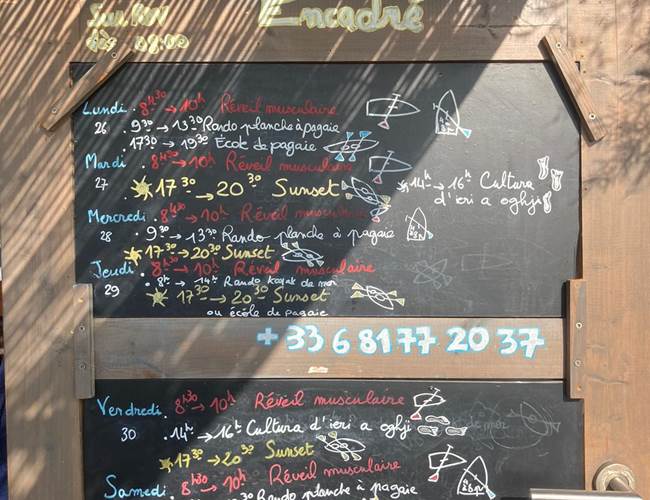 Sur RDV
dès 08:00
Encadré
Lundi . 8h30 → 10h Réveil musculaire
26 . 9 30 → 13 30 Rando planche à pagaie
. 17 30 → 19 30 École de pagaie
Mardi . 8h30 → 10h Réveil musculaire
27 . 17 30 → 20 30 Sunset
14h → 16h Cultura
d'ieri a oghji
Mercredi . 8h30 → 10h Réveil musculaire
28 . 9 30 → 13 30 Rando planche à pagaie
. 17 30 → 20 30 Sunset
Jeudi . 8h30 → 10h Réveil musculaire
29 . 8h → 14h Rando kayak de mer
17 30 → 20 30 Sunset
ou école de pagaie
+ 33 6 81 77 20 37
Vendredi . 8h30 → 10h Réveil musculaire
30 . 14h → 16h Cultura d'ieri a oghji
17 30 → 20 30 Sunset
Samedi . 8h30 → 10h Réveil musculaire
30 Rando planche à pagaie